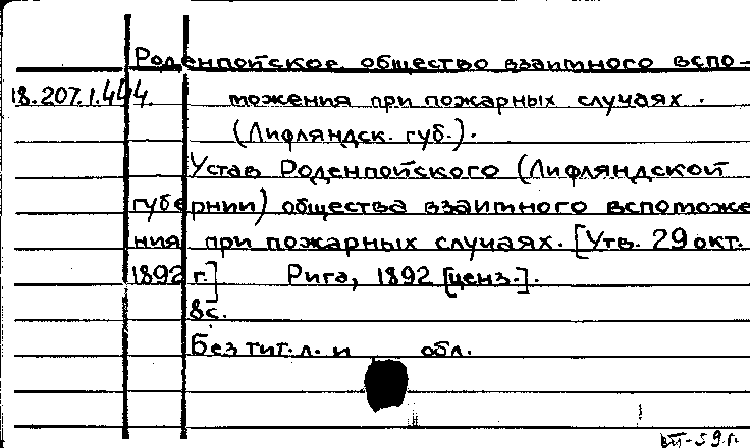 Роденпойское общество взаимного вспо-
18.207.1.444. можения при пожарных случаях.
(Лифляндск. губ.).
Устав Роденпойского (Лифляндской
губернии) общества взаимного вспоможе
ния при пожарных случаях. [Утв. 29 окт.
1892 г.] Рига, 1892 [ценз.].
8с.
Без тит. л. и обл.